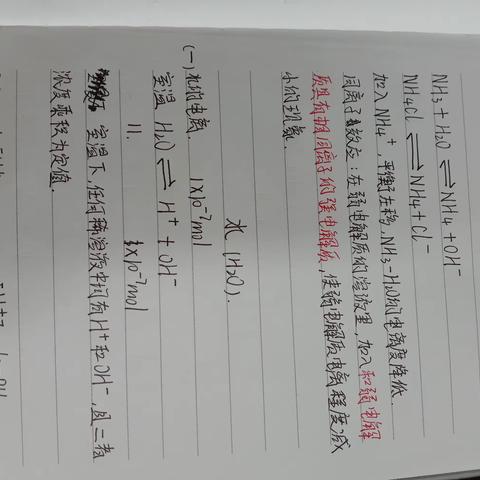 NH₃ + H₂O ⇌ NH₄ + OH⁻
NH₄Cl ⇌ NH₄ + Cl⁻
加入NH₄⁺,平衡左移,NH₃-H₂O的电离度降低.
同离子效应:在弱电解质的溶液里,加入和弱电解
质具有相同离子的强电解质,使弱电解质电离程度减
小的现象.
水 (H₂O).
(一)水的电离. 1×10⁻⁷mol
室温 H₂O ⇌ H⁺ + OH⁻
1×10⁻⁷mol
室温下,任何稀溶液中均有H⁺和OH⁻,且二者
浓度乘积为定值.